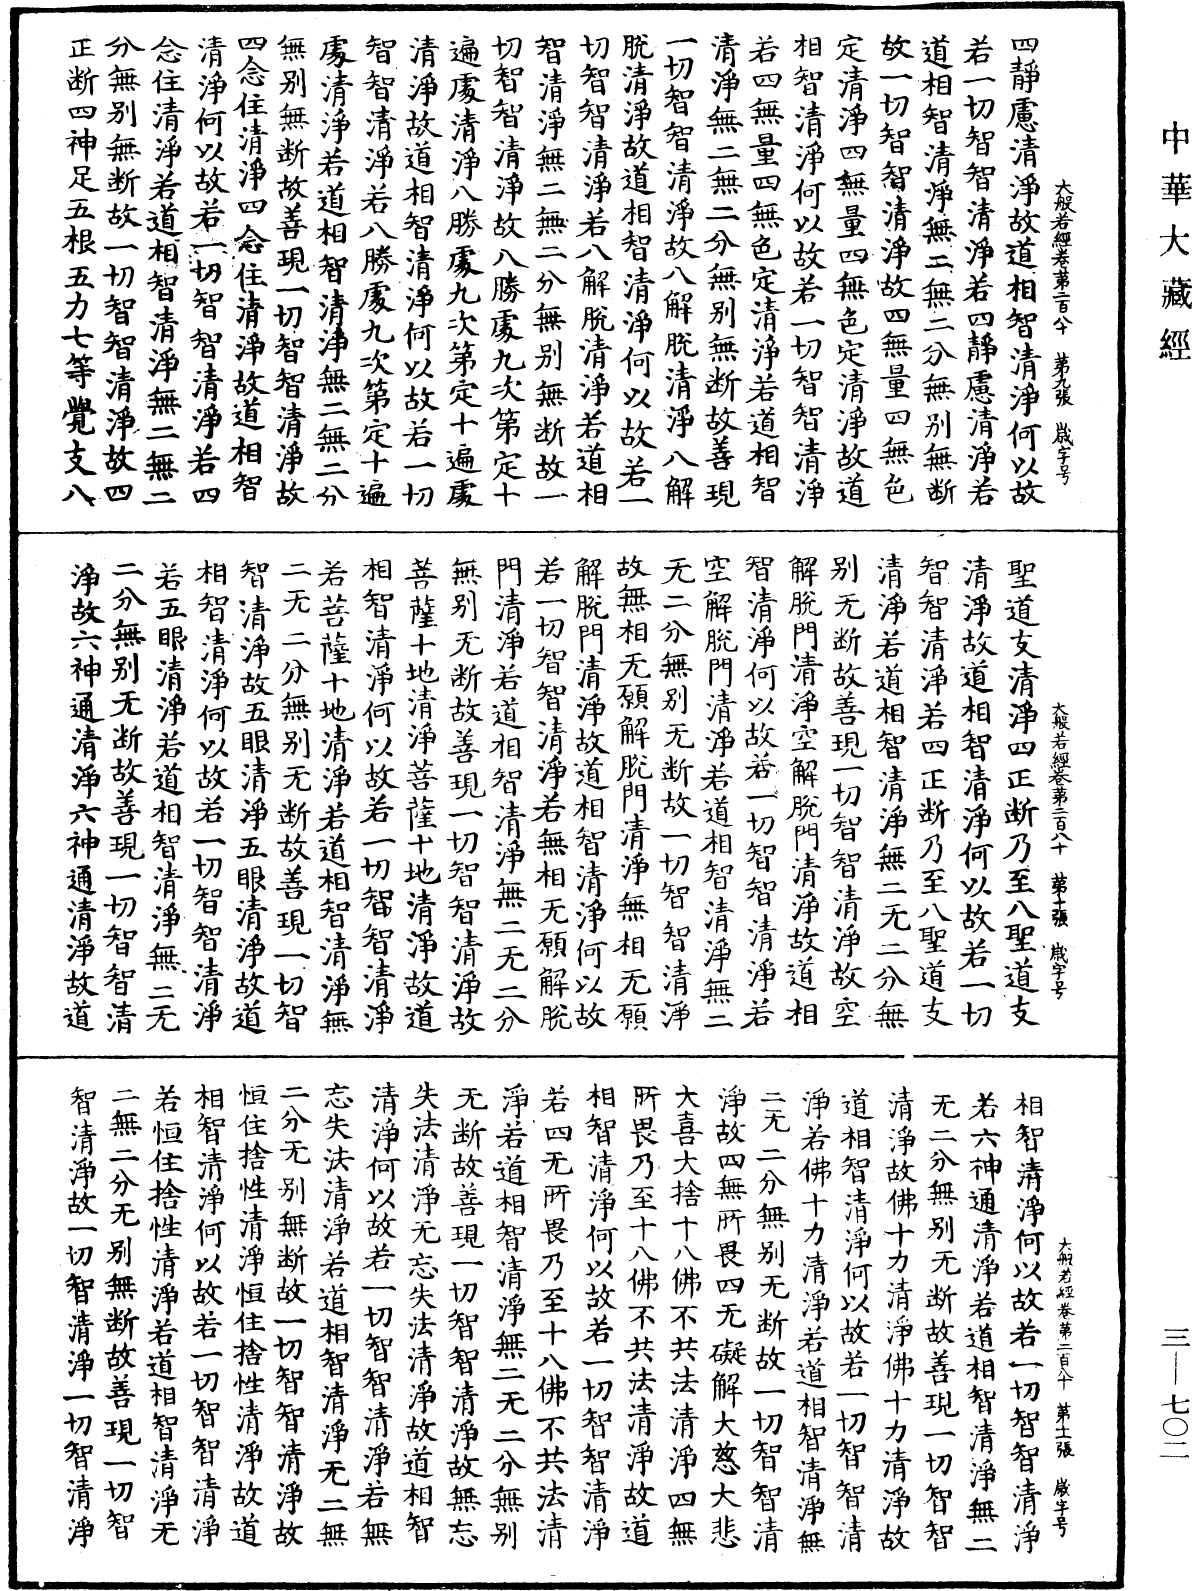 中華大藏經
四靜慮清淨故道相智清淨何以故
若一切智智清淨若四靜慮清淨若
道相智清淨無二無二分無別無斷
故一切智智清淨故四無量四無色
定清淨四無量四無色定清淨故道
相智清淨何以故若一切智智清淨
若四無量四無色定清淨若道相智
清淨無二無二分無別無斷故善現
一切智智清淨故八解脫清淨八解
脫清淨故道相智清淨何以故若一
切智智清淨若八解脫清淨若道相
智清淨無二無二分無別無斷故一
切智智清淨故八勝處九次第定十
遍處清淨八勝處九次第定十遍處
清淨故道相智清淨何以故若一切
智智清淨若八勝處九次第定十遍
處清淨若道相智清淨無二無二分
無別無斷故善現一切智智清淨故
四念住清淨四念住清淨故道相智
清淨何以故若一切智智清淨若四
念住清淨若道相智清淨無二無二
分無別無斷故一切智智清淨故四
正斷四神足五根五力七等覺支八
大般若經卷第二百八十　第九張　歲字号
聖道支清淨四正斷乃至八聖道支
清淨故道相智清淨何以故若一切
智智清淨若四正斷乃至八聖道支
清淨若道相智清淨無二无二分無
別无斷故善現一切智智清淨故空
解脫門清淨空解脫門清淨故道相
智清淨何以故若一切智智清淨若
空解脫門清淨若道相智清淨無二
无二分無別无斷故一切智智清淨
故無相无願解脫門清淨無相无願
解脫門清淨故道相智清淨何以故
若一切智智清淨若無相无願解脫
門清淨若道相智清淨無二无二分
無別无斷故善現一切智智清淨故
菩薩十地清淨菩薩十地清淨故道
相智清淨何以故若一切智智清淨
若菩薩十地清淨若道相智清淨無
二无二分無別无斷故善現一切智
智清淨故五眼清淨五眼清淨故道
相智清淨何以故若一切智智清淨
若五眼清淨若道相智清淨無二无
二分無別无斷故善現一切智智清
淨故六神通清淨六神通清淨故道
大般若經卷第二百八十　第十張　歲字号
相智清淨何以故若一切智智清淨
若六神通清淨若道相智清淨無二
无二分無別无斷故善現一切智智
清淨故佛十力清淨佛十力清淨故
道相智清淨何以故若一切智智清
淨若佛十力清淨若道相智清淨無
二无二分無別无斷故一切智智清
淨故四無所畏四无礙解大慈大悲
大喜大捨十八佛不共法清淨四無
所畏乃至十八佛不共法清淨故道
相智清淨何以故若一切智智清淨
若四无所畏乃至十八佛不共法清
淨若道相智清淨無二无二分無別
无斷故善現一切智智清淨故無忘
失法清淨无忘失法清淨故道相智
清淨何以故若一切智智清淨若無
忘失法清淨若道相智清淨无二無
二分无別無斷故一切智智清淨故
恒住捨性清淨恒住捨性清淨故道
相智清淨何以故若一切智智清淨
若恒住捨性清淨若道相智清淨无
二無二分无別無斷故善現一切智
智清淨故一切智清淨一切智清淨
大般若經卷第二百八十　第十一張　歲字号
三—七〇二